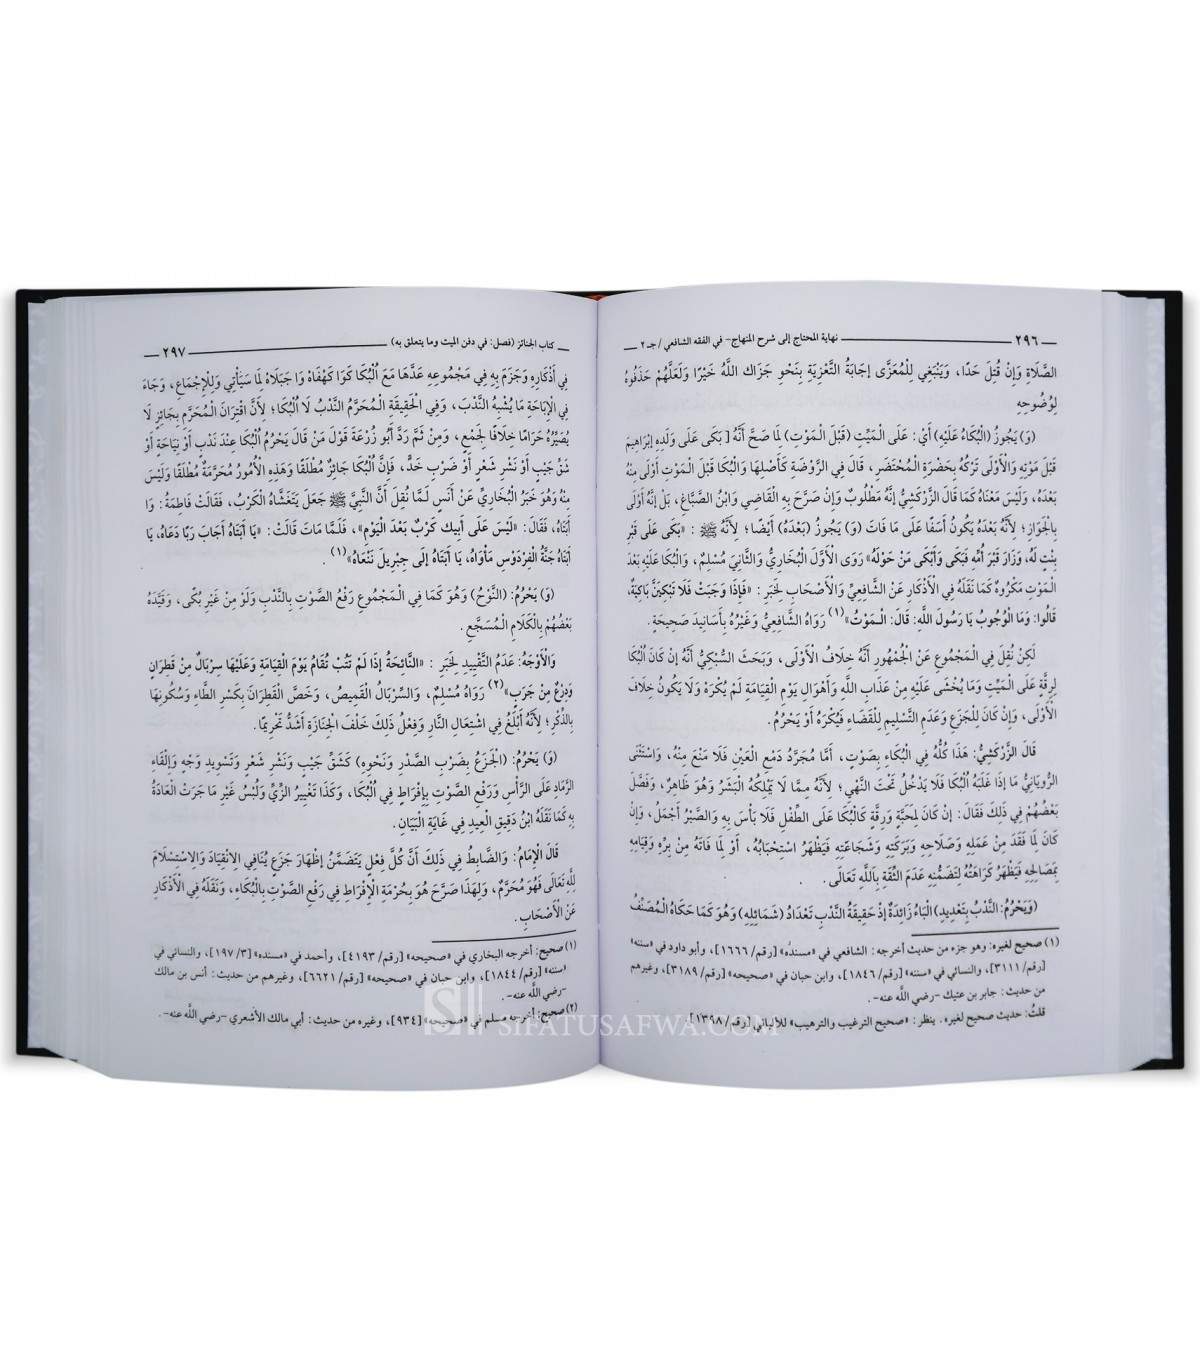 ٢٩٦ نهاية المحتاج إلى شرح المنهاج- في الفقه الشافعي / جـ ٢
الصَّلَاةِ وَإِنْ قُتِلَ حَدًّا، وَيَنْبَغِي لِلْمُعَزَّى إِجَابَةُ التَّعْزِيَةِ بِنَحْوِ جَزَاكَ اللَّهُ خَيْرًا وَلَعَلَّهُمْ حَذَفُوهُ
لِوُضُوحِهِ
(وَ) يَجُوزُ (الْبُكَاءُ عَلَيْهِ) أَيْ: عَلَى الْمَيِّتِ (قَبْلَ الْمَوْتِ) لِمَا صَحَّ أَنَّهُ [بَكَى عَلَى وَلَدِهِ إِبْرَاهِيمَ
قَبْلَ مَوْتِهِ وَالْأَوْلَى تَرْكُهُ بِحَضْرَةِ الْمُحْتَضَرِ، قَالَ فِي الرَّوْضَةِ كَأَصْلِهَا وَالْبُكَا قَبْلَ الْمَوْتِ أَوْلَى مِنْهُ
بَعْدَهُ، وَلَيْسَ مَعْنَاهُ كَمَا قَالَ الزَّرْكَشِيُّ إِنَّهُ مَطْلُوبٌ وَإِنْ صَرَّحَ بِهِ الْقَاضِي وَابْنُ الصَّبَّاغِ، بَلْ إِنَّهُ أَوْلَى
بِالْجَوَازِ؛ لِأَنَّهُ بَعْدَهُ يَكُونُ أَسَفًا عَلَى مَا فَاتَ (وَ) يَجُوزُ (بَعْدَهُ) أَيْضًا؛ لِأَنَّهُ ﷺ : «بَكَى عَلَى قَبْرِ
بِنْتٍ لَهُ، وَزَارَ قَبْرَ أُمِّهِ فَبَكَى وَأَبْكَى مَنْ حَوْلَهُ» رَوَى الْأَوَّلَ الْبُخَارِيُّ وَالثَّانِيَ مُسْلِمٌ، وَالْبُكَا عَلَيْهِ بَعْدَ
الْمَوْتِ مَكْرُوهٌ كَمَا نَقَلَهُ فِي الْأَذْكَارِ عَنْ الشَّافِعِيِّ وَالْأَصْحَابِ لِخَبَرِ : «فَإِذَا وَجَبَتْ فَلَا تَبْكِيَنَّ بَاكِيَةٌ،
قَالُوا: وَمَا الْوُجُوبُ يَا رَسُولَ اللَّهِ: قَالَ: الْمَوْتُ»(١) رَوَاهُ الشَّافِعِيُّ وَغَيْرُهُ بِأَسَانِيدَ صَحِيحَةٍ.
لَكِنْ نُقِلَ فِي الْمَجْمُوعِ عَنْ الْجُمْهُورِ أَنَّهُ خِلَافُ الْأَوْلَى، وَبَحَثَ السُّبْكِيُّ أَنَّهُ إِنْ كَانَ الْبُكَا
لِرِقَّةٍ عَلَى الْمَيِّتِ وَمَا يُخْشَى عَلَيْهِ مِنْ عَذَابِ اللَّهِ وَأَهْوَالِ يَوْمِ الْقِيَامَةِ لَمْ يُكْرَهْ وَلَا يَكُونُ خِلَافَ
الْأَوْلَى، وَإِنْ كَانَ لِلْجَزَعِ وَعَدَمِ التَّسْلِيمِ لِلْقَضَاءِ فَيُكْرَهُ أَوْ يَحْرُمُ.
قَالَ الزَّرْكَشِيُّ: هَذَا كُلُّهُ فِي الْبُكَاءِ بِصَوْتٍ، أَمَّا مُجَرَّدُ دَمْعِ الْعَيْنِ فَلَا مَنْعَ مِنْهُ، وَاسْتَثْنَى
الرُّويَانِيُّ مَا إِذَا غَلَبَهُ الْبُكَا فَلَا يَدْخُلُ تَحْتَ النَّهْيِ؛ لِأَنَّهُ مِمَّا لَا يَمْلِكُهُ الْبَشَرُ وَهُوَ ظَاهِرٌ، وَفَصَّلَ
بَعْضُهُمْ فِي ذَلِكَ فَقَالَ: إِنْ كَانَ لِمَحَبَّةٍ وَرِقَّةٍ كَالْبُكَا عَلَى الطِّفْلِ فَلَا بَأْسَ بِهِ وَالصَّبْرُ أَجْمَلُ، وَإِنْ
كَانَ لِمَا فَقَدَ مِنْ عَمَلِهِ وَصَلَاحِهِ وَبَرَكَتِهِ وَشَجَاعَتِهِ فَيَظْهَرُ اسْتِحْبَابُهُ، أَوْ لِمَا فَاتَهُ مِنْ بِرِّهِ وَقِيَامِهِ
بِمَصَالِحِهِ فَيَظْهَرُ كَرَاهَتُهُ لِتَضَمُّنِهِ عَدَمَ الثِّقَةِ بِاَللَّهِ تَعَالَى.
(وَيَحْرُمُ: النَّدْبُ بِتَعْدِيدِ) الْبَاءُ زَائِدَةٌ إِذْ حَقِيقَةُ النَّدْبِ تَعْدَادُ (شَمَائِلِهِ) وَهُوَ كَمَا حَكَاهُ الْمُصَنِّفُ
(١) صحيح لغيره: وهو جزء من حديث أخرجه: الشافعي في «مسنده» [رقم/ ١٦٦٦]، وأبو داود في «سننه»
[رقم/ ٣١١١]، والنسائي في «سننه» [رقم/ ١٨٤٦]، وابن حبان في «صحيحه» [رقم/ ٣١٨٩]، وغيرهم
من حديث: جابر بن عتيك -رضي اللَّه عنه-.
قلتُ: حديث صحيح لغيره. ينظر: «صحيح الترغيب والترهيب» للألباني [رقم/ ١٣٩٨].
كتاب الجنائز (فصل: في دفن الميت وما يتعلق به) ٢٩٧
فِي أَذْكَارِهِ وَجَزَمَ بِهِ فِي مَجْمُوعِهِ عَدَّهَا مَعَ الْبُكَا كَوَا كَهْفَاهْ وَا جَبَلَاهْ لِمَا سَيَأْتِي وَلِلْإِجْمَاعِ، وَجَاءَ
فِي الْإِبَاحَةِ مَا يُشْبِهُ النَّدْبَ، وَفِي الْحَقِيقَةِ الْمُحَرَّمُ النَّدْبُ لَا الْبُكَا؛ لِأَنَّ اقْتِرَانَ الْمُحَرَّمِ بِجَائِزٍ لَا
يُصَيِّرُهُ حَرَامًا خِلَافًا لِجَمْعٍ، وَمِنْ ثَمَّ رَدَّ أَبُو زُرْعَةَ قَوْلَ مَنْ قَالَ يَحْرُمُ الْبُكَا عِنْدَ نَدْبٍ أَوْ نِيَاحَةٍ أَوْ
شَقِّ جَيْبٍ أَوْ نَشْرِ شَعْرٍ أَوْ ضَرْبِ خَدٍّ، فَإِنَّ الْبُكَا جَائِزٌ مُطْلَقًا وَهَذِهِ الْأُمُورُ مُحَرَّمَةٌ مُطْلَقًا وَلَيْسَ
مِنْهُ وَهُوَ خَبَرُ الْبُخَارِيِّ عَنْ أَنَسٍ لَمَّا نُقِلَ أَنَّ النَّبِيَّ ﷺ جَعَلَ يَتَغَشَّاهُ الْكَرْبُ، فَقَالَتْ فَاطِمَةُ: وَا
أَبَتَاهْ، فَقَالَ: «لَيْسَ عَلَى أَبِيك كَرْبٌ بَعْدَ الْيَوْمِ»، فَلَمَّا مَاتَ قَالَتْ: «يَا أَبَتَاهُ أَجَابَ رَبًّا دَعَاهُ، يَا
أَبَتَاهُ جَنَّةُ الْفِرْدَوْسِ مَأْوَاهُ، يَا أَبَتَاهُ إِلَى جِبْرِيلَ نَنْعَاهُ»(١).
(وَ) يَحْرُمُ: (النَّوْحُ) وَهُوَ كَمَا فِي الْمَجْمُوعِ رَفْعُ الصَّوْتِ بِالنَّدْبِ وَلَوْ مِنْ غَيْرِ بُكًى، وَقَيَّدَهُ
بَعْضُهُمْ بِالْكَلَامِ الْمُسَجَّعِ.
وَالْأَوْجَهُ: عَدَمُ التَّقْيِيدِ لِخَبَرِ : «النَّائِحَةُ إِذَا لَمْ تَتُبْ تُقَامُ يَوْمَ الْقِيَامَةِ وَعَلَيْهَا سِرْبَالٌ مِنْ قَطِرَانٍ
وَدِرْعٌ مِنْ جَرَبٍ»(٢) رَوَاهُ مُسْلِمٌ، وَالسِّرْبَالُ الْقَمِيصُ، وَخَصَّ الْقَطِرَانَ بِكَسْرِ الطَّاءِ وَسُكُونِهَا
بِالذِّكْرِ؛ لِأَنَّهُ أَبْلَغُ فِي اشْتِعَالِ النَّارِ وَفِعْلُ ذَلِكَ خَلْفَ الْجِنَازَةِ أَشَدُّ تَحْرِيمًا.
(وَ) يَحْرُمُ: (الْجَزَعُ بِضَرْبِ الصَّدْرِ وَنَحْوِهِ) كَشَقِّ جَيْبٍ وَنَشْرِ شَعْرٍ وَتَسْوِيدِ وَجْهٍ وَإِلْقَاءِ
الرَّمَادِ عَلَى الرَّأْسِ وَرَفْعِ الصَّوْتِ بِإِفْرَاطٍ فِي الْبُكَا، وَكَذَا تَغْيِيرُ الزِّيِّ وَلُبْسُ غَيْرِ مَا جَرَتْ الْعَادَةُ
بِهِ كَمَا نَقَلَهُ ابْنُ دَقِيقِ الْعِيدِ فِي غَايَةِ الْبَيَانِ.
قَالَ الْإِمَامُ: وَالضَّابِطُ فِي ذَلِكَ أَنَّ كُلَّ فِعْلٍ يَتَضَمَّنُ إِظْهَارَ جَزَعٍ يُنَافِي الِانْقِيَادَ وَالِاسْتِسْلَامَ
لِلَّهِ تَعَالَى فَهُوَ مُحَرَّمٌ، وَلِهَذَا صَرَّحَ هُوَ بِحُرْمَةِ الْإِفْرَاطِ فِي رَفْعِ الصَّوْتِ بِالْبُكَاءِ، وَنَقَلَهُ فِي الْأَذْكَارِ
عَنْ الْأَصْحَابِ.
(١) صحيح: أخرجه البخاري في «صحيحه» [رقم/ ٤١٩٣]، وأحمد في «مسنده» [٣/ ١٩٧]، والنسائي في
«سننه» [رقم/ ١٨٤٤]، وابن حبان في «صحيحه» [رقم/ ٦٦٢١]، وغيرهم من حديث: أنس بن مالك
-رضي اللَّه عنه-.
(٢) صحيح: أخرجه مسلم في «صحيحه» [٩٣٤]، وغيره من حديث: أبي مالك الأشعري -رضي اللَّه عنه-.
SIFATUSAFWA.COM